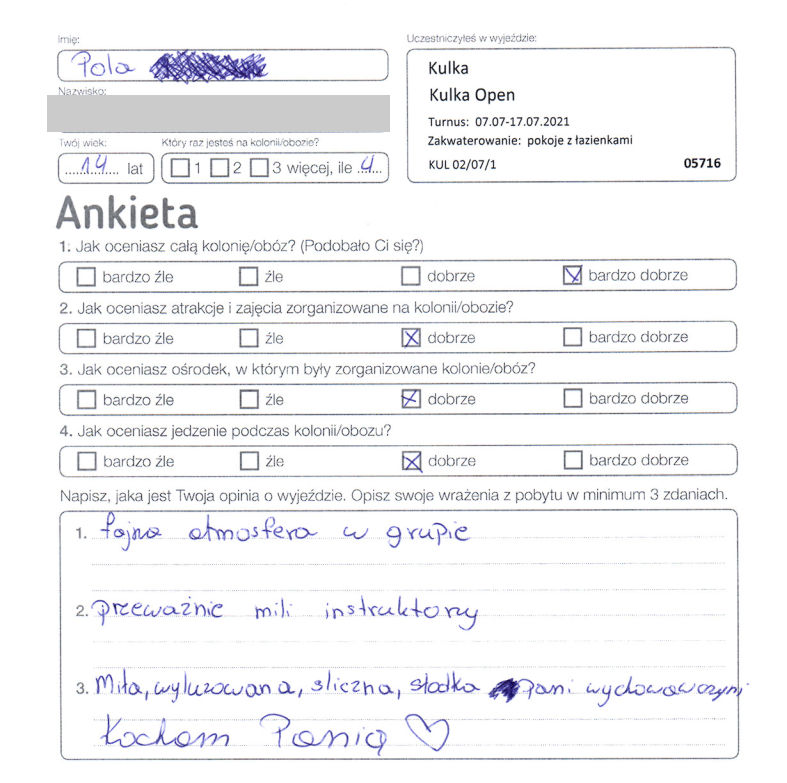 Imię:
Pola
Uczestniczyłeś w wyjeździe:
Kulka
Kulka Open
Turnus: 07.07-17.07.2021
Zakwaterowanie: pokoje z łazienkami
KUL 02/07/1 05716
Nazwisko:
Twój wiek:
14 lat
Który raz jesteś na kolonii/obozie?
1 2 3 więcej, ile 4
Ankieta
1. Jak oceniasz całą kolonię/obóz? (Podobało Ci się?)
bardzo źle źle dobrze bardzo dobrze
2. Jak oceniasz atrakcje i zajęcia zorganizowane na kolonii/obozie?
bardzo źle źle dobrze bardzo dobrze
3. Jak oceniasz ośrodek, w którym były zorganizowane kolonie/obóz?
bardzo źle źle dobrze bardzo dobrze
4. Jak oceniasz jedzenie podczas kolonii/obozu?
bardzo źle źle dobrze bardzo dobrze
Napisz, jaka jest Twoja opinia o wyjeździe. Opisz swoje wrażenia z pobytu w minimum 3 zdaniach.
1. fajna atmosfera w grupie
2. przeważnie mili instruktorzy
3. Miła, wyluzowana, śliczna, słodka Pani wychowawczyni
Kocham Panią ♡